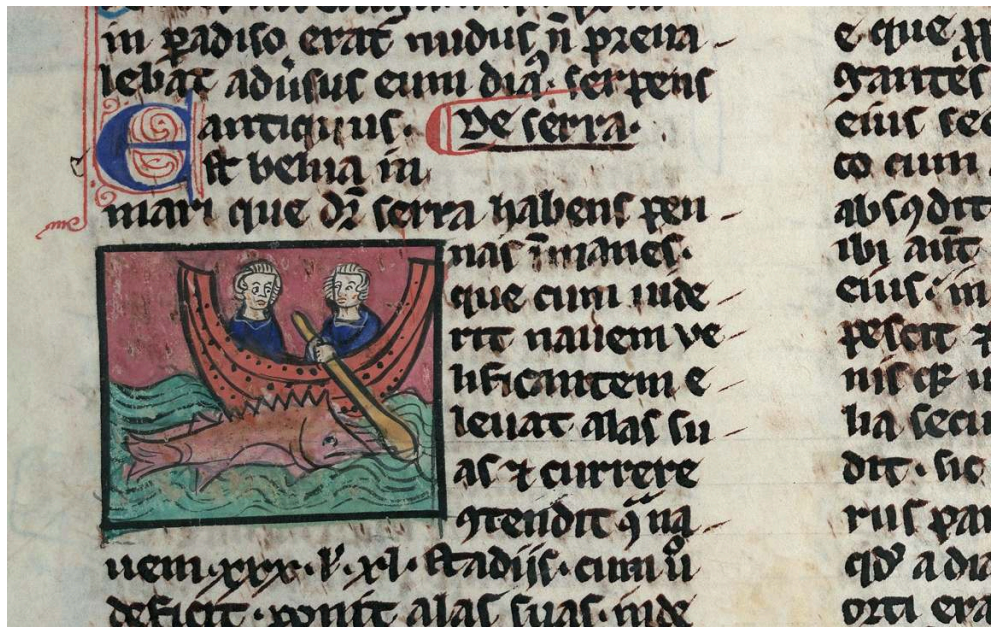 in ꝑadiso erat̄ nudus n̄ preua
lebat adu̓sus eum dia. serpens
antiquus. De serra.
Est belua in
mari que dr̄ serra habens pen
nas īmanes.
que cum uide
rit nauem ve
lificantem e
leuat alas su
as ⁊ currere
ꝯtendit ꝗ̄ na
uem. xxx. ł. xl. stadijs. cum ů
deficit. ponit alas suas. inde
e que
gantes
eius sec
co cum
absꝯdit
ibi aut̄
eius. in
pescit ⁊
nis
lia secu
dit. sic
rus par
qd̓ a dia
orti era